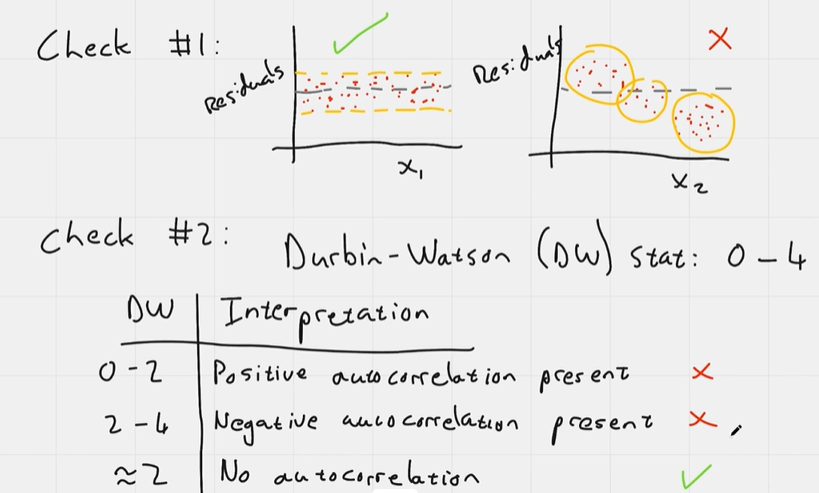 Check #1:
Residuals
x₁
Residuals
x₂
Check #2: Durbin-Watson (DW) stat: 0-4
DW Interpretation
0-2 Positive autocorrelation present
2-4 Negative autocorrelation present
≈2 No autocorrelation